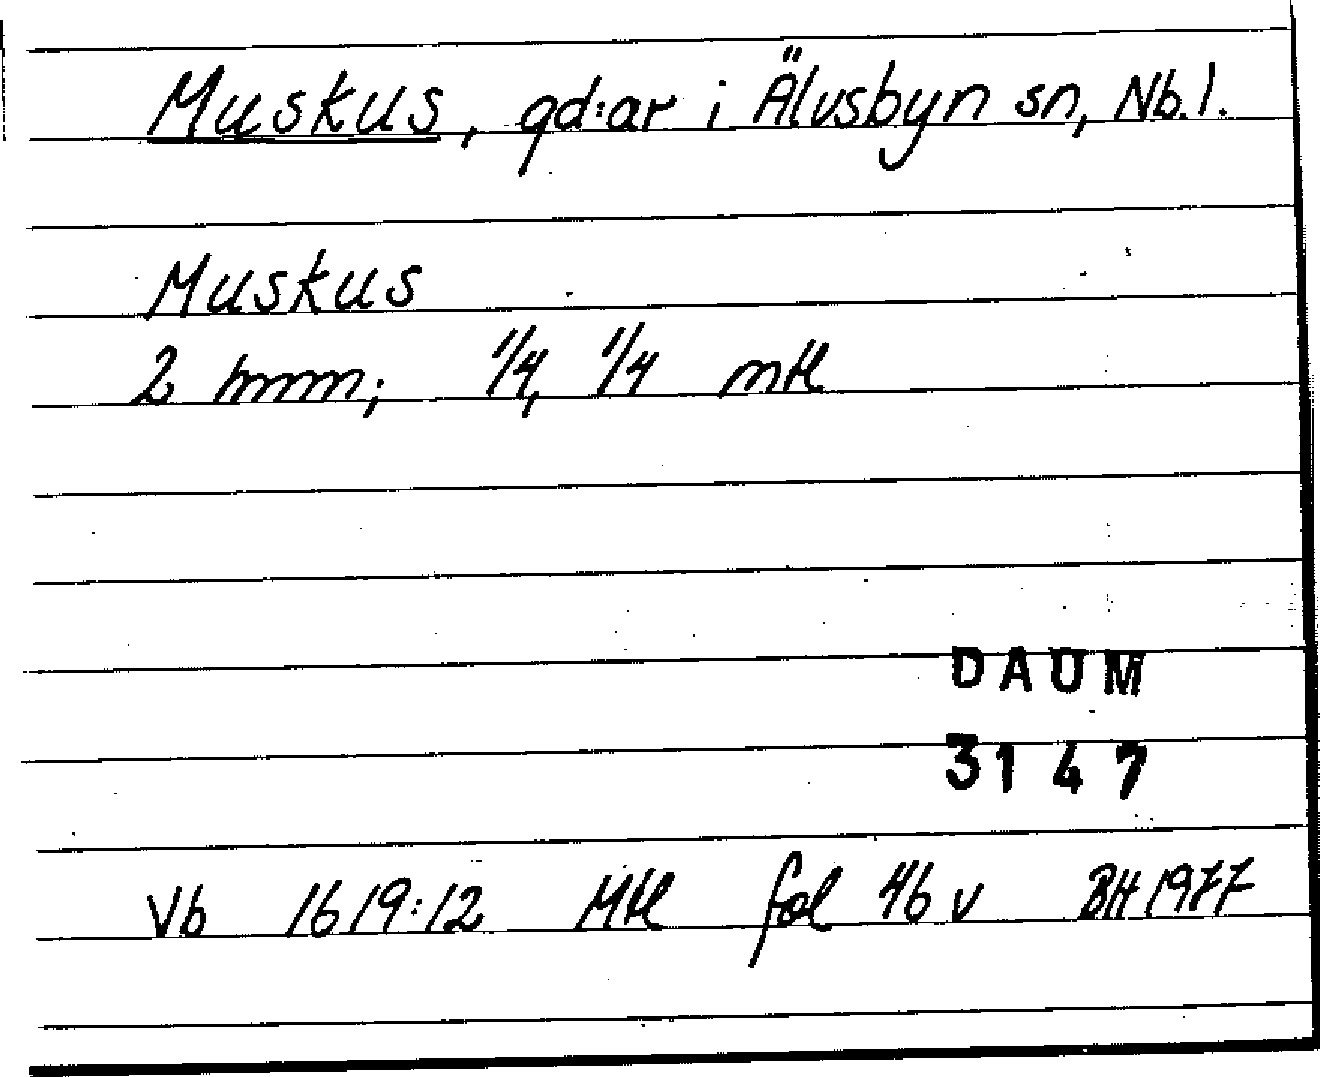 Muskus, gd:ar i Älvsbyn sn, Nb.l.
Muskus
2 hmm; 1/4, 1/4 mtl
DAUM
3147
Vb 1619:12 Mtl fol 46 v BH 1977